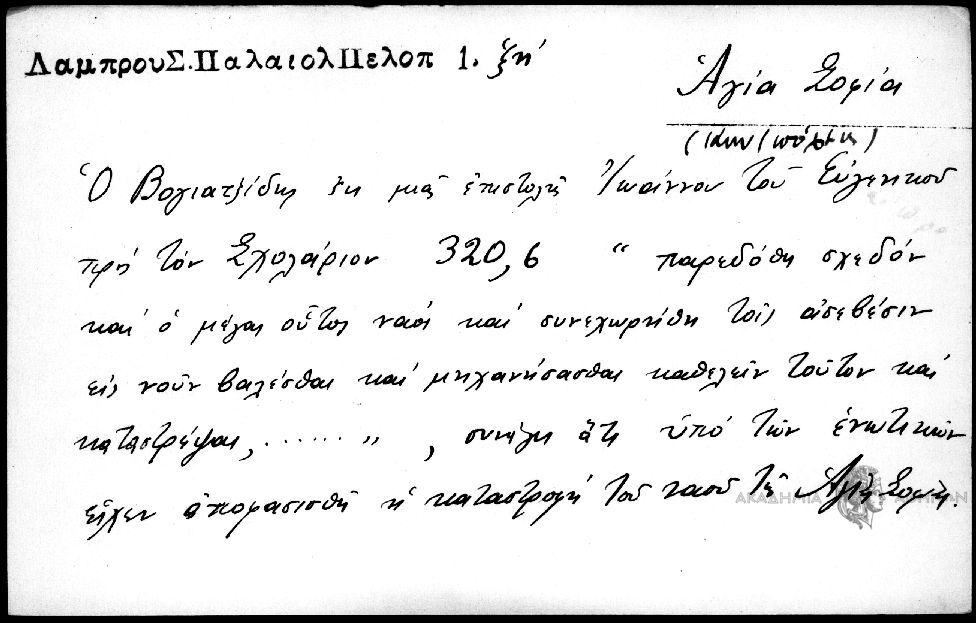 ΛαμπρουΣ.ΠαλαιολΠελοπ 1. ξη'
Ἁγία Σοφία
(Κων/πόλεως)
Ὁ Βογιατζίδης ἐκ μιᾶς ἐπιστολῆς Ἰωάννου τοῦ Εὐγενικοῦ
πρὸς τὸν Σχολάριον 320,6 " παρεδόθη σχεδὸν
καὶ ὁ μέγας οὗτος ναὸς καὶ συνεχωρήθη τοῖς ἀσεβέσιν
εἰς νοῦν βαλέσθαι καὶ μηχανήσασθαι καθελεῖν τοῦτον καὶ
καταστρέψαι, ...... ", συνάγει ὅτι ὑπὸ τῶν ἑνωτικῶν
εἶχεν ἀποφασισθῆ ἡ καταστροφὴ τοῦ ναοῦ τῆς Ἁγίας Σοφίας.
ΑΚΑΔΗΜΙΑ